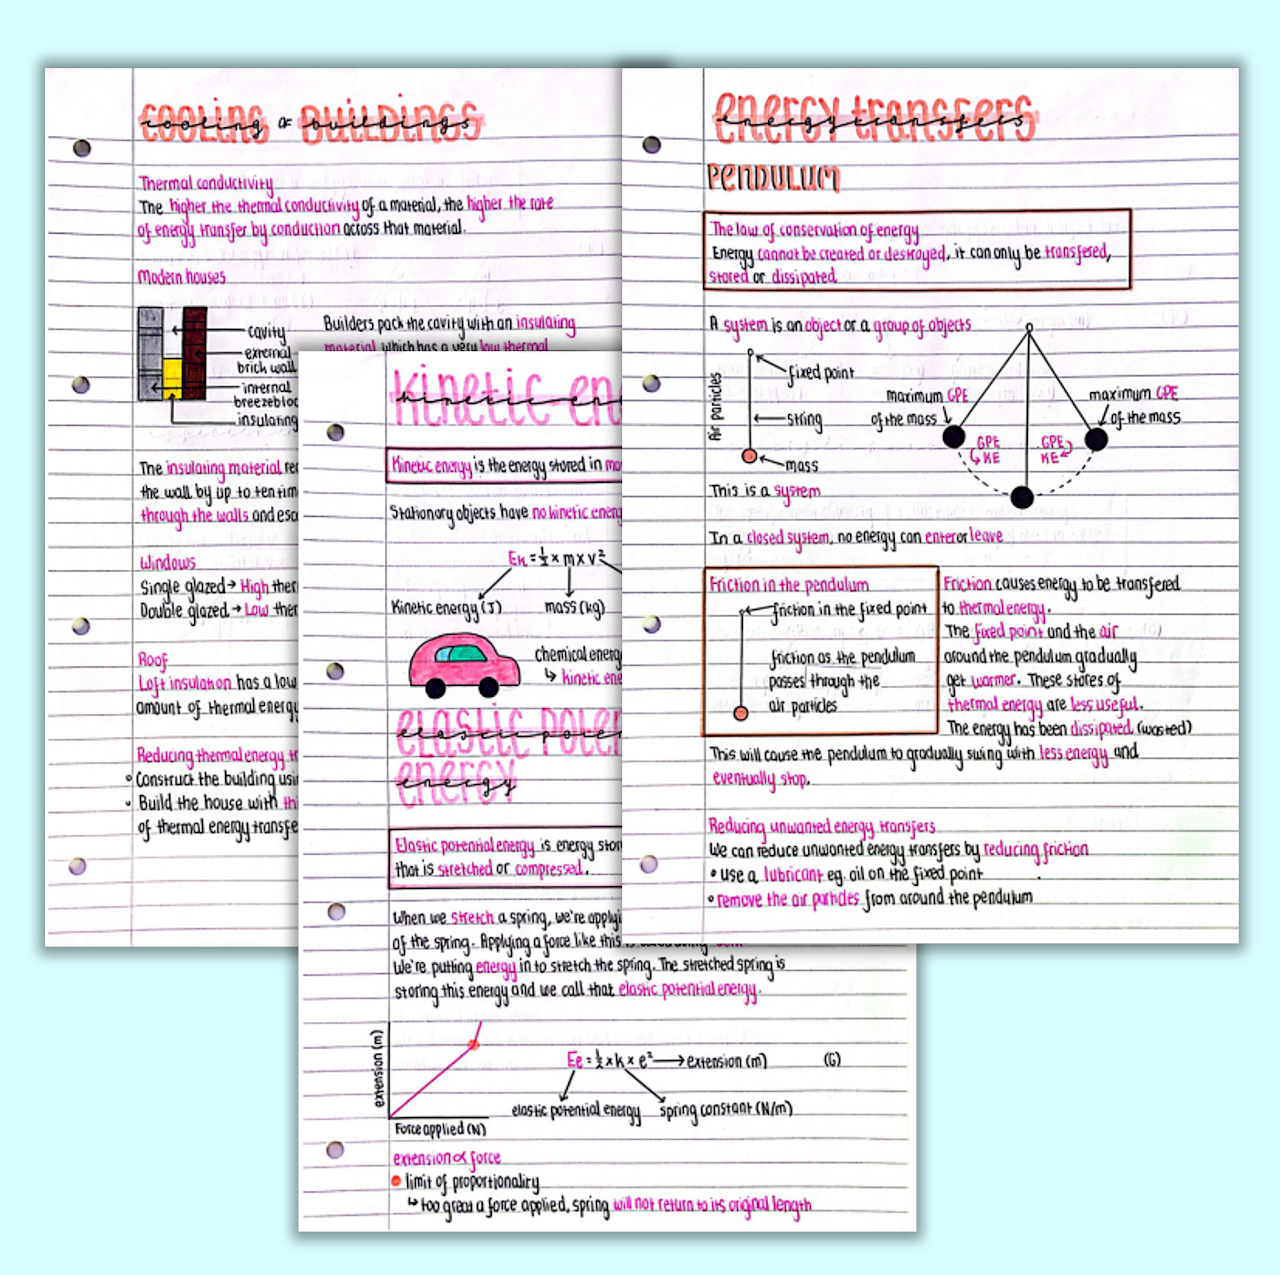 cooling of buildings
Thermal conductivity
The higher the thermal conductivity of a material, the higher the rate
of energy transfer by conduction across that material.
Modern houses
cavity
external
brick wall
internal
breezebloc
insulating
Builders pack the cavity with an insulating
material which has a very low thermal
The insulating material
the wall by up to ten tim
through the walls and esc
Windows
Single glazed → High ther
Double glazed → Low ther
Roof
Loft insulation has a low
amount of thermal energy
Reducing thermal energy tr
• Construct the building usi
• Build the house with thi
of thermal energy transfe
kinetic en
Kinetic energy is the energy stored in mo
Stationary objects have no kinetic energ
Ek = ½ × m × v²
Kinetic energy (J)
mass (kg)
chemical energ
↳ kinetic ene
elastic poten
energy
Elastic potential energy is energy stor
that is stretched or compressed.
When we stretch a spring, we're applyi
of the spring. Applying a force like this is
We're putting energy in to stretch the spring. The stretched spring is
storing this energy and we call that elastic potential energy.
extension (m)
Force applied (N)
Ee = ½ × k × e² → extension (m)
(G)
elastic potential energy
spring constant (N/m)
extension ∝ force
limit of proportionality
↳ too great a force applied, spring will not return to its original length
energy transfers
PENDULUM
The law of conservation of energy
Energy cannot be created or destroyed, it can only be transfered,
stored or dissipated.
A system is an object or a group of objects
Air particles
fixed point
string
mass
This is a system
maximum GPE
of the mass
GPE
KE
GPE
KE
maximum GPE
of the mass
In a closed system, no energy can enter or leave
Friction in the pendulum
friction in the fixed point
friction as the pendulum
passes through the
air particles
Friction causes energy to be transfered
to thermal energy.
The fixed point and the air
around the pendulum gradually
get warmer. These stores of
thermal energy are less useful.
The energy has been dissipated (wasted)
This will cause the pendulum to gradually swing with less energy and
eventually stop.
Reducing unwanted energy transfers
We can reduce unwanted energy transfers by reducing friction
• use a lubricant eg. oil on the fixed point
• remove the air particles from around the pendulum